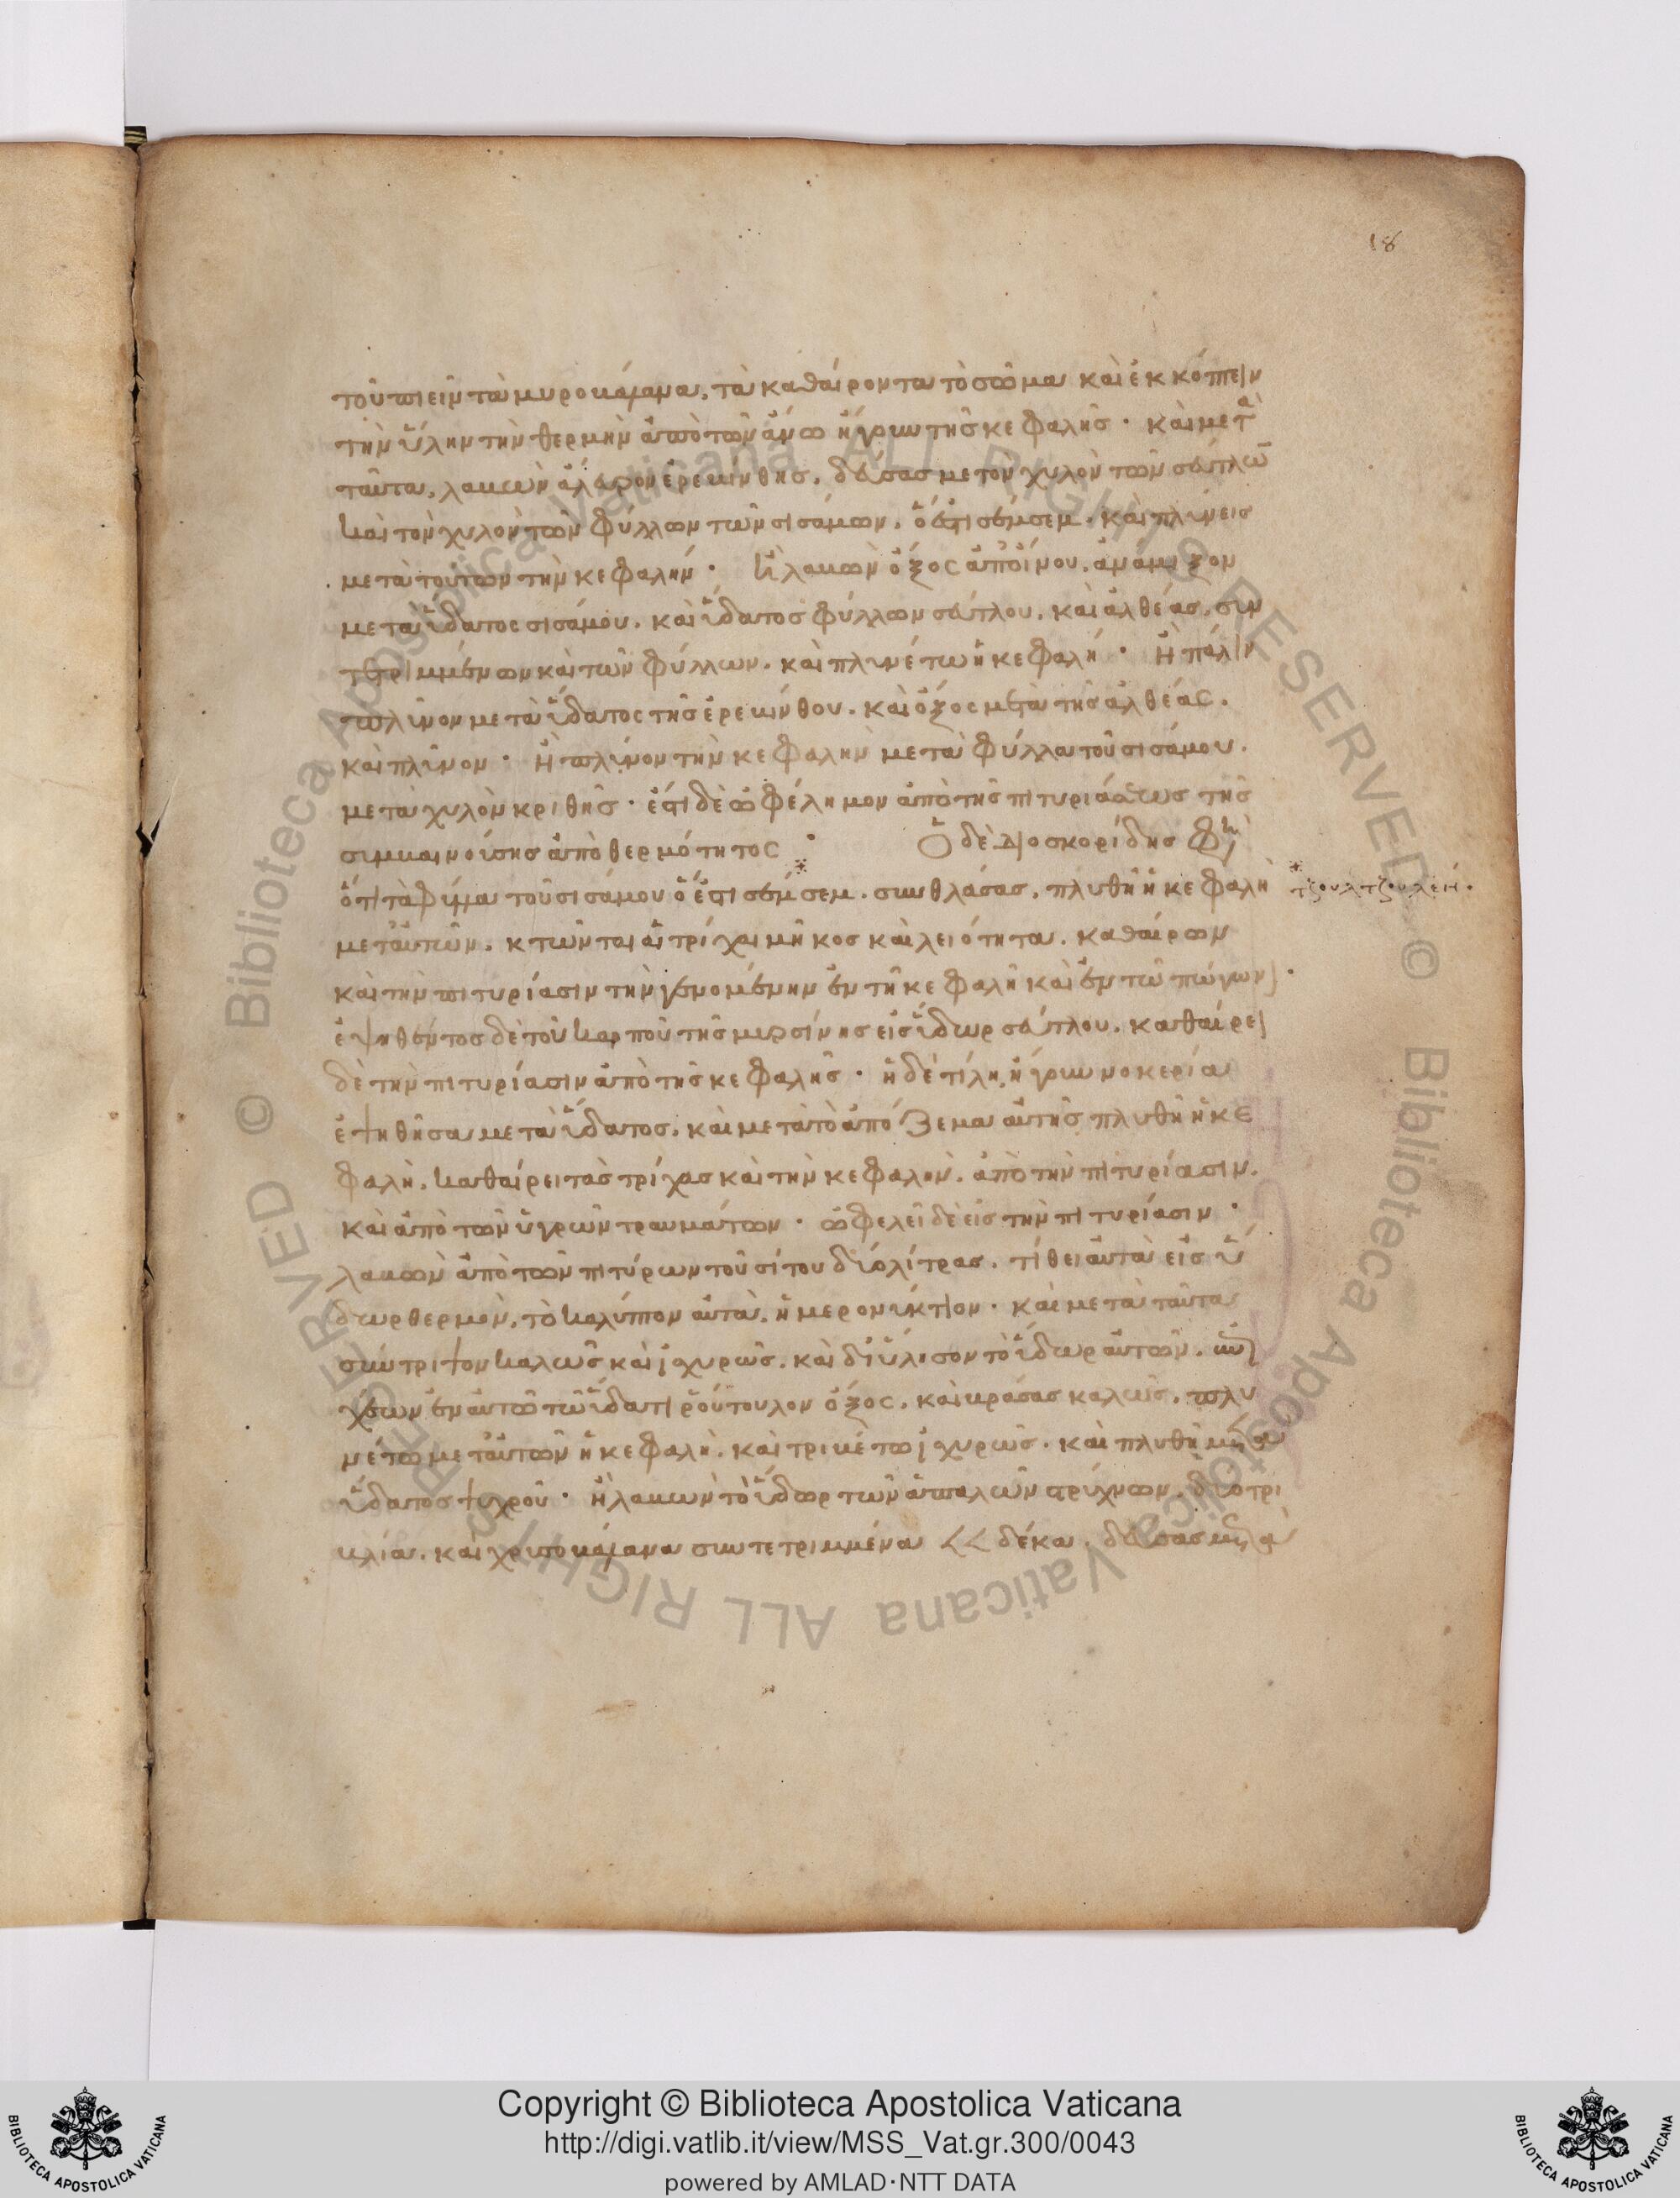 18
τοῦ πιεῖν τὰ μυροβάλανα, τὰ καθαίροντα τὸ σῶμα καὶ ἐκκόπτειν
τὴν ὕλην τὴν θερμὴν ἀπὸ τῶν ἄνω ἤγουν τῆς κεφαλῆς · καὶ μετὰ
ταῦτα, λαβὼν ἄλευρον ἐρεβίνθης, δεύσας με τὸν χυλὸν τῶν σεύτλω
καὶ τὸν χυλὸν τῶν φύλλων τῶν σισάμων, ὅ ἐστι σέμσεμ, καὶ πλύνεις
μετὰ τούτων τὴν κεφαλήν · Εἰ λαβὼν ὄξος ἀπὸ οἴνου, ἀνάμιξον
μετὰ ὕδατος σισάμου, καὶ ὕδατος φύλλων σεύτλου, καὶ ἀλθέας, συν
τετριμμένων καὶ τῶν φύλλων, καὶ πλυνέτω ἡ κεφαλή · Ἢ πάλιν
πλῦνον μετὰ ὕδατος τῆς ἐρεβίνθου, καὶ ὄξος μετὰ τῆς ἀλθέας,
καὶ πλῦνον · Ἢ πλῦνον τὴν κεφαλὴν μετὰ φύλλα τοῦ σισάμου,
μετὰ χυλὸν κριθῆς · ἔστι δὲ ὠφέλημον ἀπὸ τῆς πιτυριάσεως τῆς
συμβαινούσης ἀπὸ θερμότητος · Ὁ δὲ Διοσκορίδης φη
ὅτι τὰ φύμα τοῦ σισάμου ὅ ἐστι σέμσεμ, συνθλάσας, πλυθῆ ἡ κεφαλὴ
τζουλτζουλεή·
μετ' αὐτῶν, κτῶνται αἱ τρίχαι μῆκος καὶ λειότητα, καθαίρων
καὶ τὴν πιτυρίασιν τὴν γενομένην ἐν τῆ κεφαλῆ καὶ ἐν τῶ πώγωνι ·
ἑψηθέντος δὲ τοῦ καρποῦ τῆς μυρσίνης εἰς ὕδωρ σεύτλου, καθαίρει
δὲ τὴν πιτυρίασιν ἀπὸ τῆς κεφαλῆς · ἡ δὲ τίλη, ἤγουν μοκερία
ἑψηθῆσα μετὰ ὕδατος, καὶ μετὰ τὸ ἀπόζεμα αὐτῆς πλυθῆ ἡ κε
φαλὴ, καθαίρει τὰς τρίχας καὶ τὴν κεφαλὴν, ἀπὸ τὴν πιτυρίασιν,
καὶ ἀπὸ τῶν ὑγρῶν τραυμάτων · ὠφελεῖ δὲ εἰς τὴν πιτυρίασιν ·
λαβὼν ἀπὸ τῶν πιτύρων τοῦ σίτου δύο λίτρας, τίθει αὐτὰ εἰς ὕ
δωρ θερμὸν, τὸ καλύπτον αὐτὰ, ἡμερονύκτιον · καὶ μετὰ ταῦτα
σύντριψον καλῶς καὶ ἰσχυρῶς, καὶ διΰλισον τὸ ὕδωρ αὐτῶν,
χέων ἐν αὐτῶ τῶ ὕδατι ῥούτουλον ὄξος, καὶ κράσας καλῶς, πλυ
νέτω μετ' αὐτῶν ἡ κεφαλὴ, καὶ τριβέτω ἰσχυρῶς · καὶ πλυθῆ
ὕδατος ψυχροῦ · ἢ λαβὼν τὸ ὕδωρ τῶν ἁπαλῶν στρύχνων, δύο τρι
βλία, καὶ χρυσοβάλανα συντετριμμένα << δέκα, δεύσας
Copyright © Biblioteca Apostolica Vaticana
http://digi.vatlib.it/view/MSS_Vat.gr.300/0043
powered by AMLAD·NTT DATA